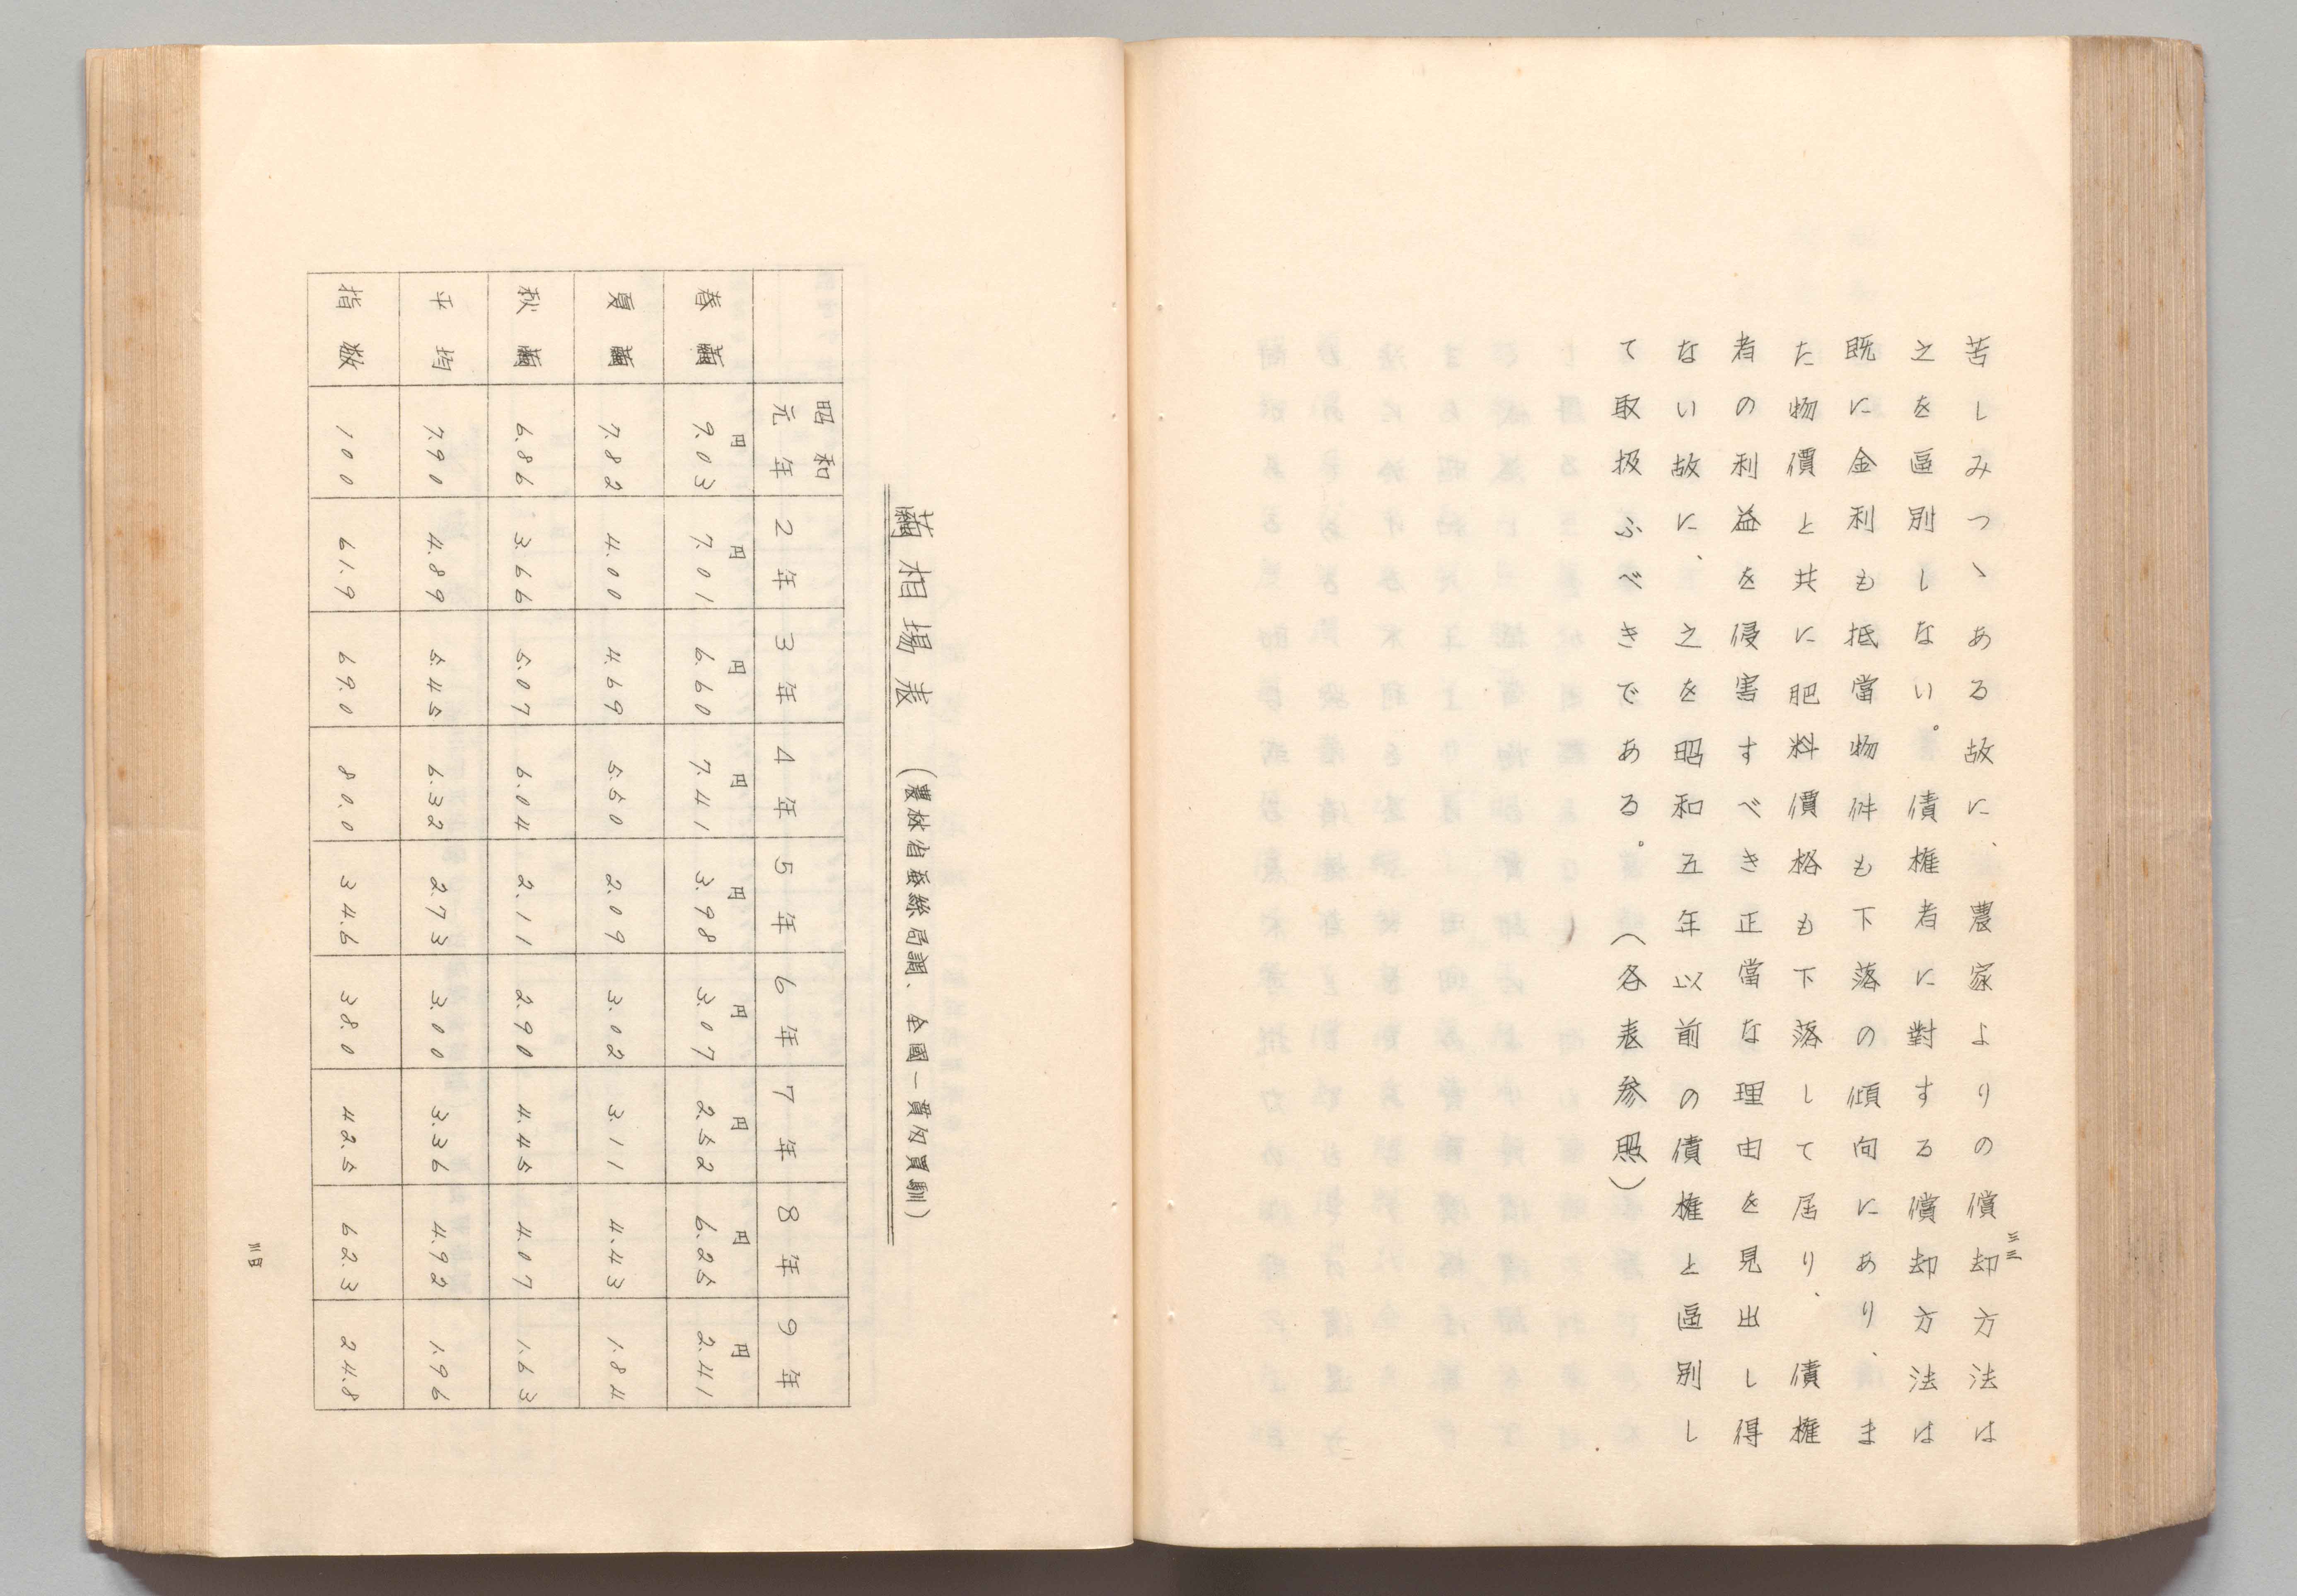 三三
苦しみつゝある故に、農家よりの償却方法は
之を區別しない。債権者に對する償却方法は
既に金利も抵當物件も下落の傾向にあり、ま
た物價と共に肥料價格も下落して居り、債權
者の利益を侵害すべき正當な理由を見出し得
ない故に、之を昭和五年以前の債權と區別し
て取扱ふべきである。(各表参照)
繭相場表 (農林省蚕絲局調、全國一貫匁買馴)
昭和元年 2年 3年 4年 5年 6年 7年 8年 9年
春繭 9.03円 7.01円 6.60円 7.41円 3.98円 3.07円 2.52円 6.25円 2.41円
夏繭 7.82 4.00 4.69 5.50 2.09 3.02 3.11 4.43 1.84
秋繭 6.86 3.66 5.07 6.04 2.11 2.90 4.45 4.07 1.63
平均 7.90 4.89 5.45 6.32 2.73 3.00 3.36 4.92 1.96
指数 100 61.9 69.0 80.0 34.6 38.0 42.5 62.3 24.8
三四